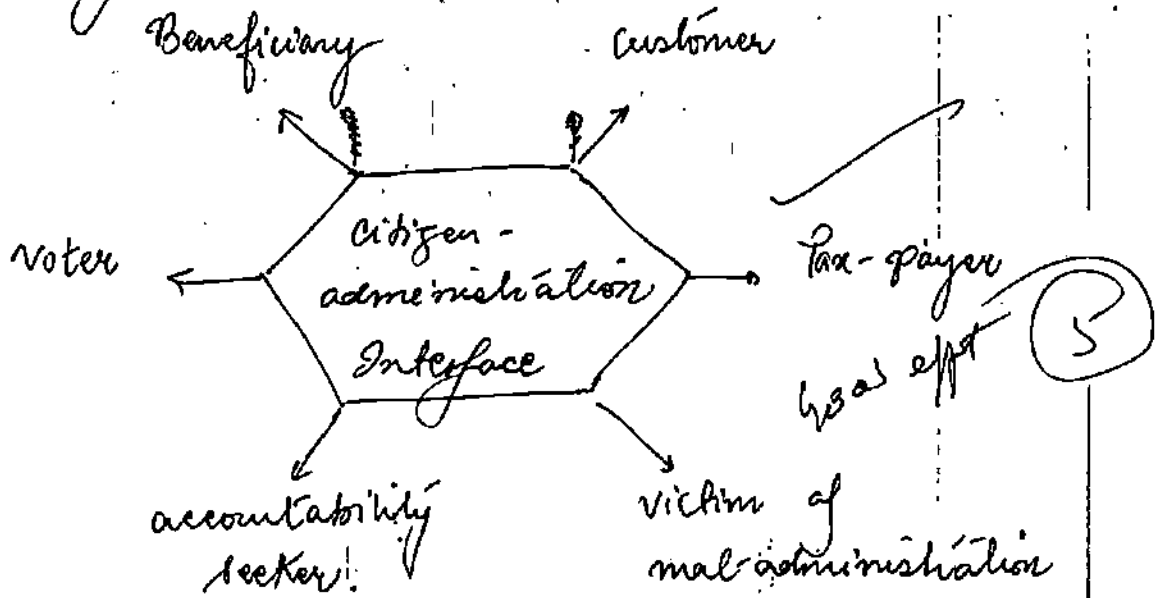 Beneficiary
Customer
Voter
Citizen -
administration
Interface
Tax-payer
Good effort
5
accountability
seeker.
victim of
mal-administration